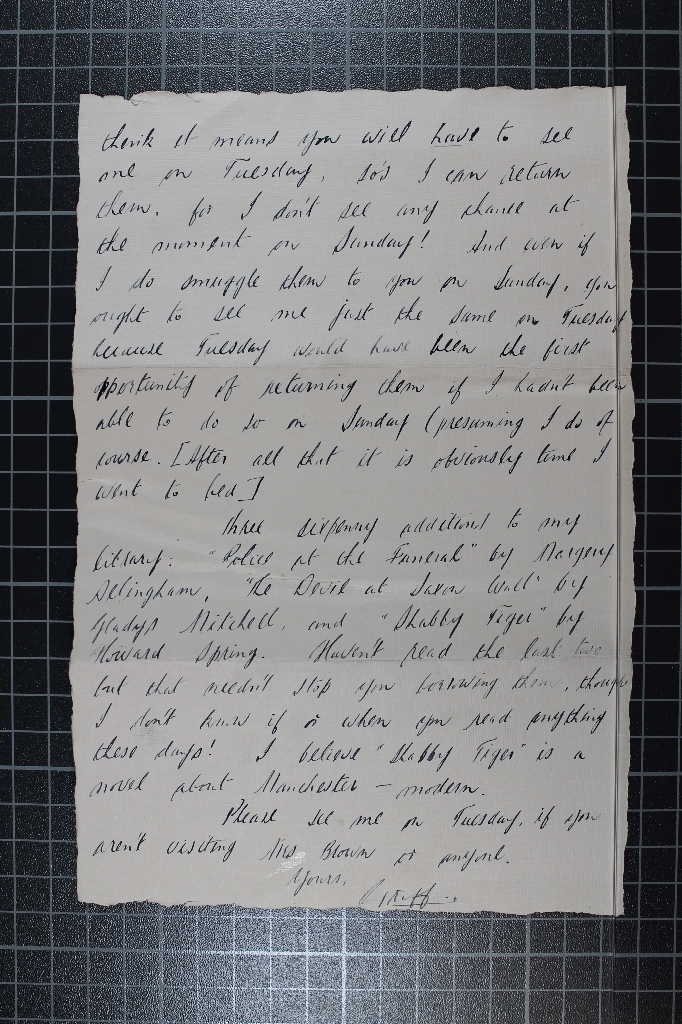 think it means you will have to see
me on Tuesday, so's I can return
them, for I don't see any chance at
the moment on Sunday! And even if
I do smuggle them to you on Sunday, you
ought to see me just the same on Tuesday
because Tuesday would have been the first
opportunity of returning them if I hadn't been
able to do so on Sunday (presuming I do of
course. [After all that it is obviously time I
went to bed.]
Three sixpenny additions to my
library: "Police at the Funeral" by Margery
Allingham, "The Devil at Saxon Wall" by
Gladys Mitchell, and "Shabby Tiger" by
Howard Spring. Haven't read the last two
but that needn't stop you borrowing them, though
I don't know if or when you read anything
these days! I believe "Shabby Tiger" is a
novel about Manchester - modern.
Please see me on Tuesday, if you
aren't visiting Mrs. Brown or anyone.
Yours,